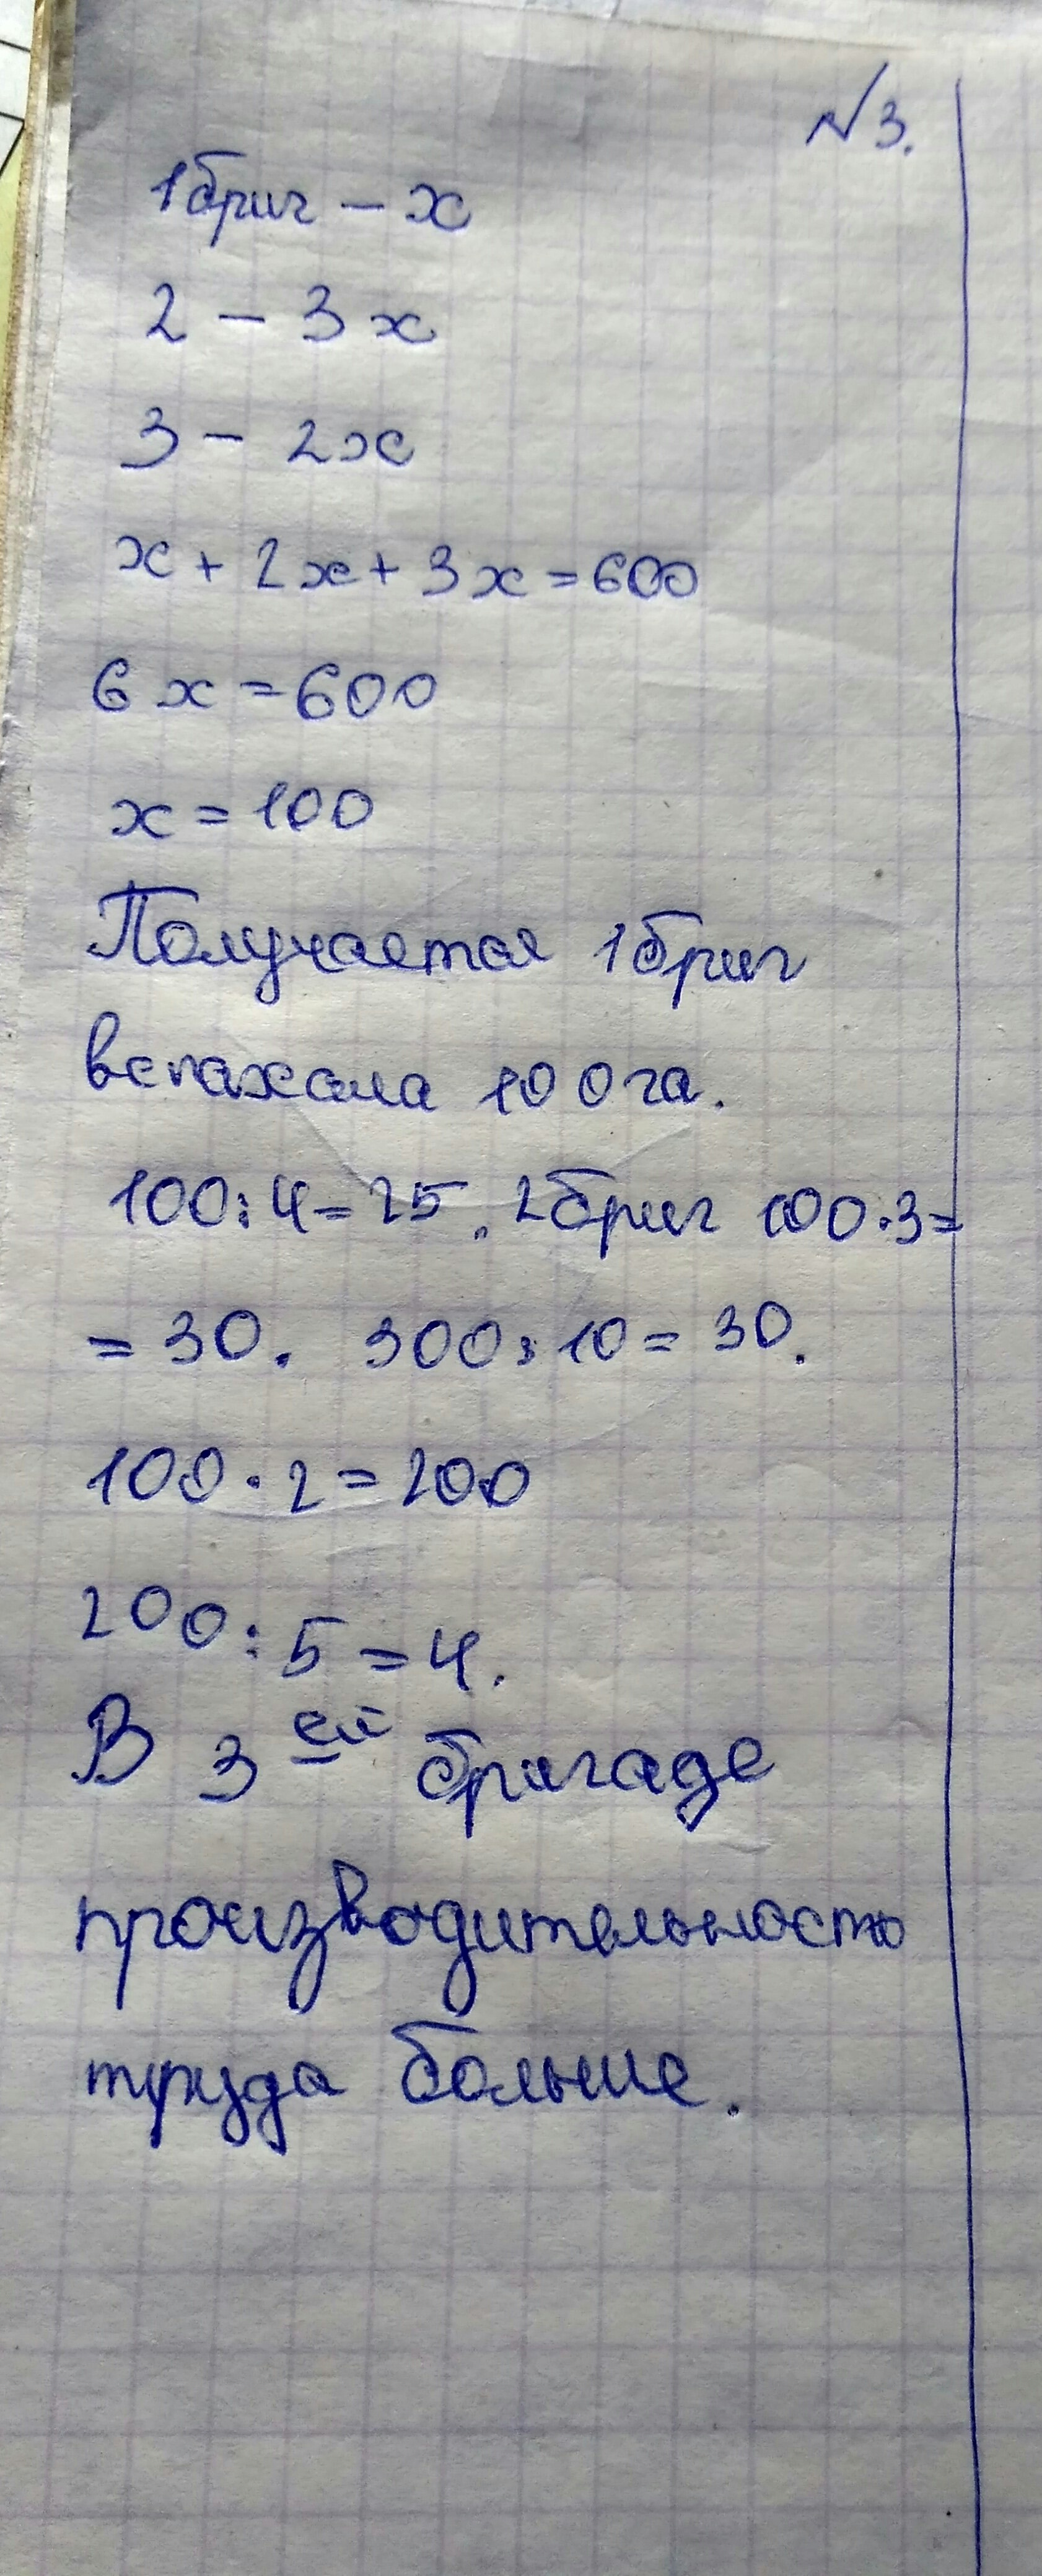 №3.
1 бриг – х
2 – 3х
3 – 2х
х + 2х + 3х = 600
6х = 600
х = 100
Получается 1 бриг
вспахала 100 га.
100 : 4 = 25. 2 бриг 100 · 3 =
= 30. 300 : 10 = 30.
100 · 2 = 200
200 : 5 = 4.
В 3 ей бригаде
производительность
труда больше.